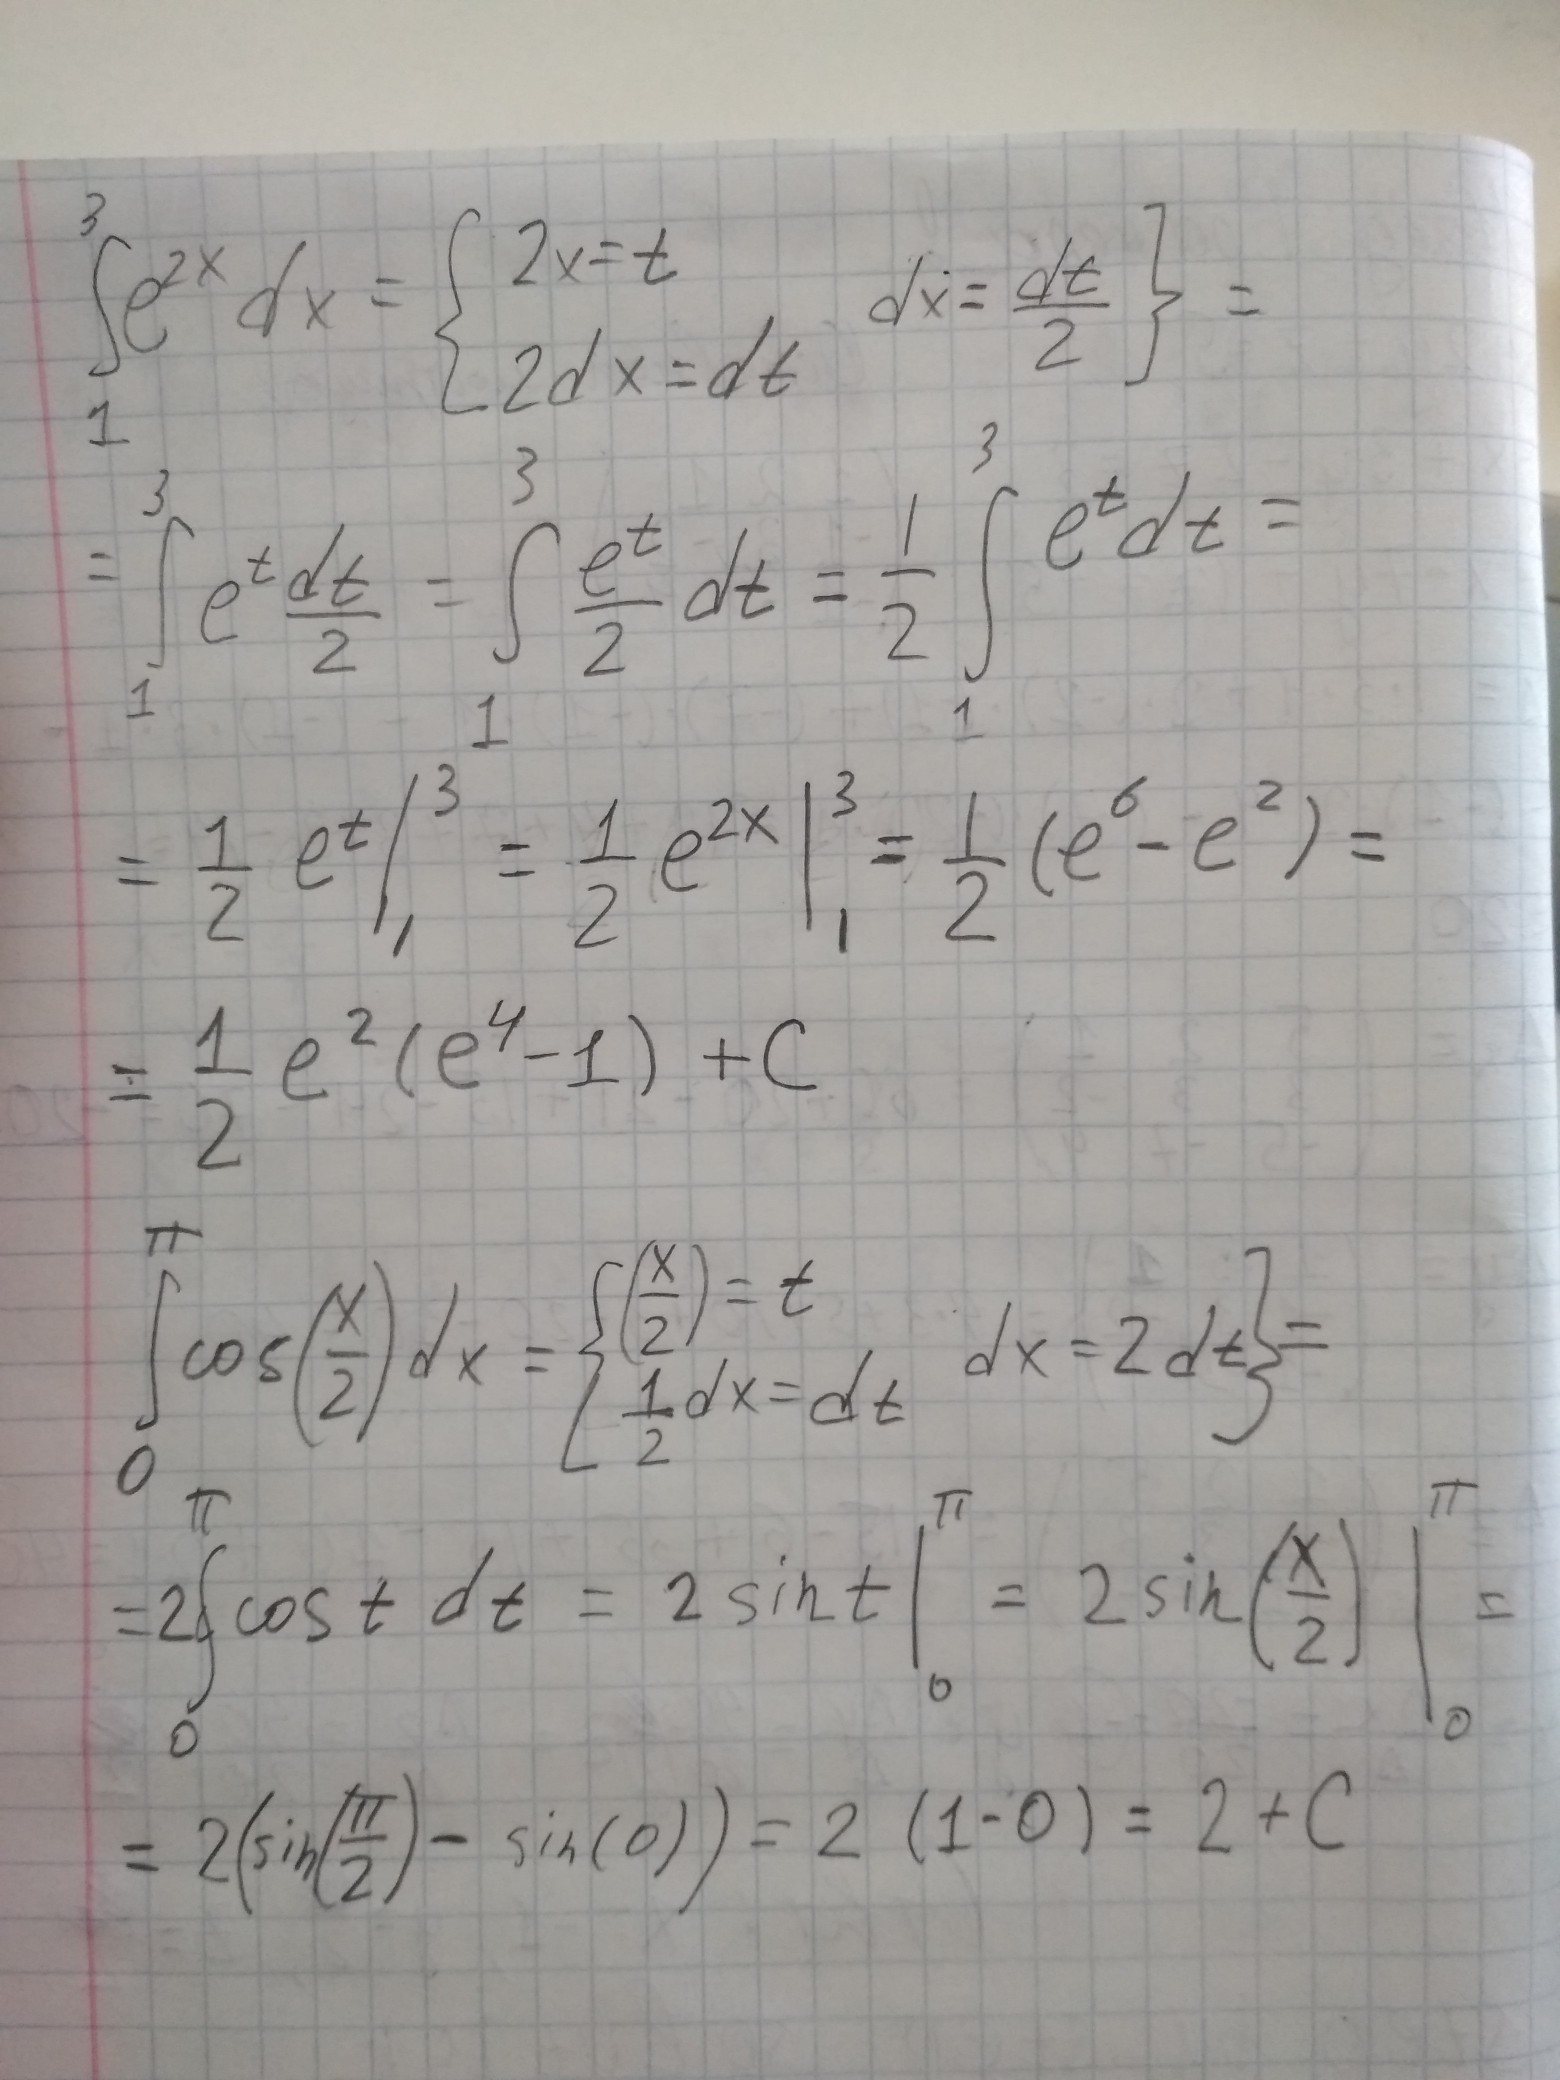 ∫₁³ e²ˣ dx = { 2x = t   2dx = dt   dx = dt/2 } =
= ∫₁³ eᵗ dt/2 = ∫₁³ eᵗ/2 dt = 1/2 ∫₁³ eᵗ dt =
= 1/2 eᵗ |₁³ = 1/2 e²ˣ |₁³ = 1/2 (e⁶ - e²) =
= 1/2 e² (e⁴ - 1) + C
∫₀^π cos(x/2) dx = { (x/2) = t   1/2 dx = dt   dx = 2 dt } =
= 2 ∫₀^π cos t dt = 2 sin t |₀^π = 2 sin(x/2) |₀^π =
= 2(sin(π/2) - sin(0)) = 2 (1 - 0) = 2 + C